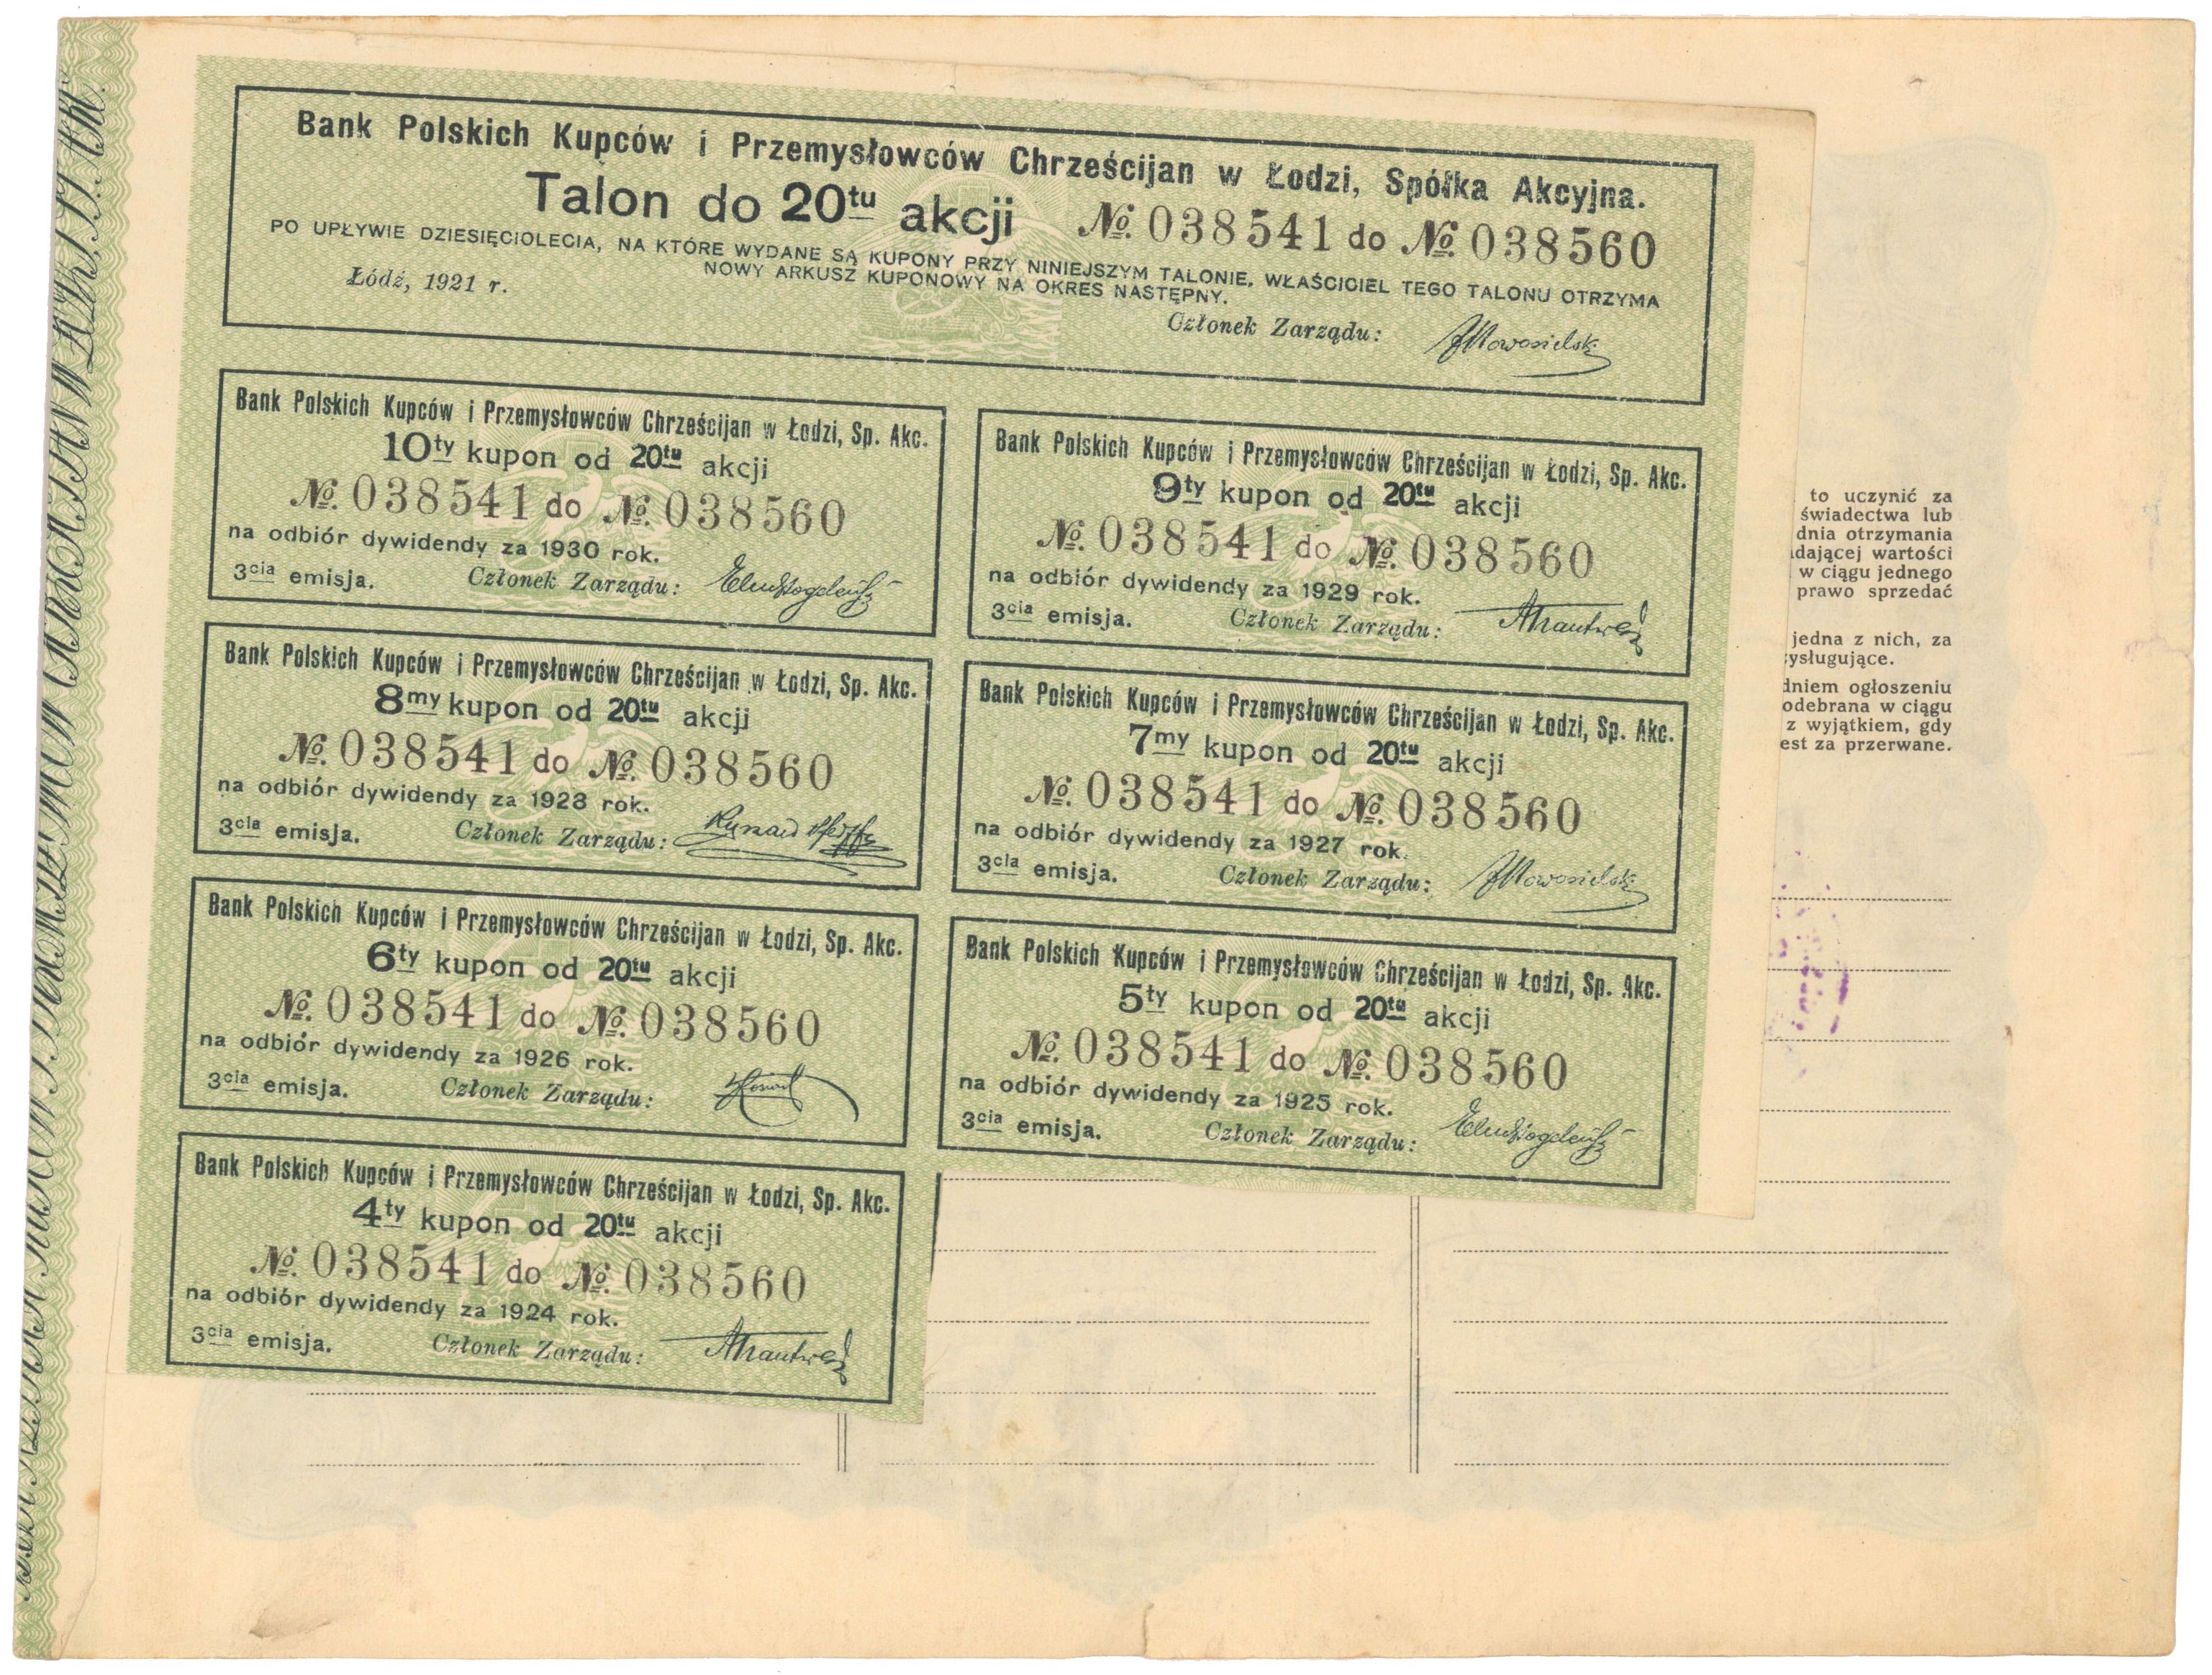 Bank Polskich Kupców i Przemysłowców Chrześcijan w Łodzi, Spółka Akcyjna.
Talon do 20tu akcji № 038541 do № 038560
PO UPŁYWIE DZIESIĘCIOLECIA, NA KTÓRE WYDANE SĄ KUPONY PRZY NINIEJSZYM TALONIE, WŁAŚCICIEL TEGO TALONU OTRZYMA
NOWY ARKUSZ KUPONOWY NA OKRES NASTĘPNY.
Łódź, 1921 r.
Członek Zarządu:
Bank Polskich Kupców i Przemysłowców Chrześcijan w Łodzi, Sp. Akc.
10ty kupon od 20tu akcji
№ 038541 do № 038560
na odbiór dywidendy za 1930 rok.
3cia emisja. Członek Zarządu:
Bank Polskich Kupców i Przemysłowców Chrześcijan w Łodzi, Sp. Akc.
9ty kupon od 20tu akcji
№ 038541 do № 038560
na odbiór dywidendy za 1929 rok.
3cia emisja. Członek Zarządu:
Bank Polskich Kupców i Przemysłowców Chrześcijan w Łodzi, Sp. Akc.
8my kupon od 20tu akcji
№ 038541 do № 038560
na odbiór dywidendy za 1928 rok.
3cia emisja. Członek Zarządu:
Bank Polskich Kupców i Przemysłowców Chrześcijan w Łodzi, Sp. Akc.
7my kupon od 20tu akcji
№ 038541 do № 038560
na odbiór dywidendy za 1927 rok.
3cia emisja. Członek Zarządu:
Bank Polskich Kupców i Przemysłowców Chrześcijan w Łodzi, Sp. Akc.
6ty kupon od 20tu akcji
№ 038541 do № 038560
na odbiór dywidendy za 1926 rok.
3cia emisja. Członek Zarządu:
Bank Polskich Kupców i Przemysłowców Chrześcijan w Łodzi, Sp. Akc.
5ty kupon od 20tu akcji
№ 038541 do № 038560
na odbiór dywidendy za 1925 rok.
3cia emisja. Członek Zarządu:
Bank Polskich Kupców i Przemysłowców Chrześcijan w Łodzi, Sp. Akc.
4ty kupon od 20tu akcji
№ 038541 do № 038560
na odbiór dywidendy za 1924 rok.
3cia emisja. Członek Zarządu:
to uczynić za
świadectwa lub
dnia otrzymania
dającej wartości
w ciągu jednego
prawo sprzedać
jedna z nich, za
ysługujące.
dniem ogłoszeniu
odebrana w ciągu
z wyjątkiem, gdy
est za przerwane.